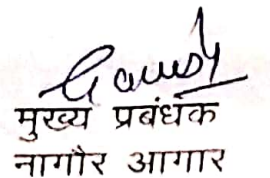 मुख्य प्रबंधक
नागौर आगार